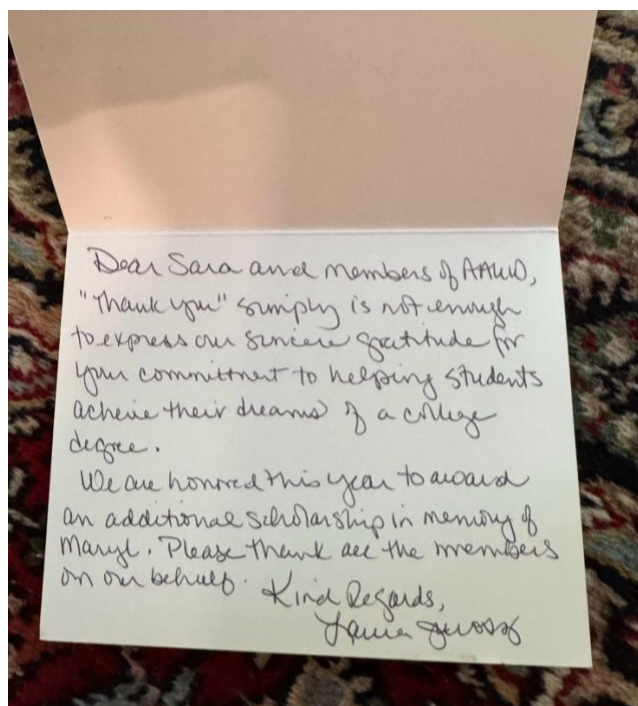 Dear Sara and members of AAUW,
"Thank you" simply is not enough
to express our sincere gratitude for
your commitment to helping students
acheive their dreams of a college
degree.
We are honored this year to award
an additional scholarship in memory of
Maryl. Please thank all the members
on our behalf. Kind Regards,
Laura